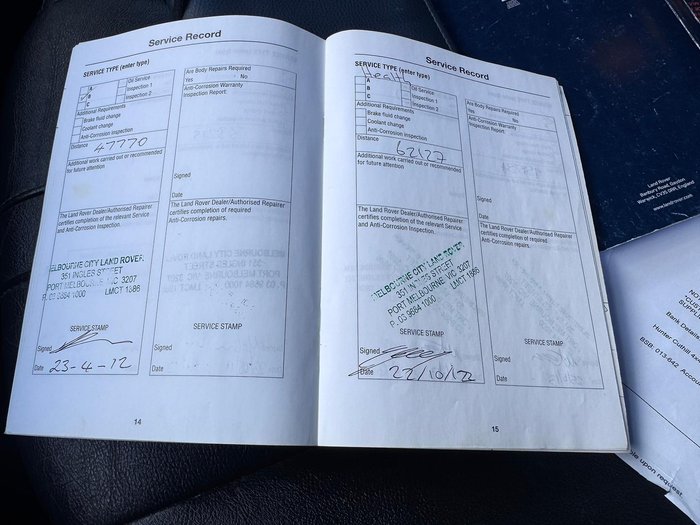 Service Record
SERVICE TYPE (enter type)
A
B
C
Oil Service
Inspection 1
Inspection 2
Additional Requirements
Brake fluid change
Coolant change
Anti-Corrosion Inspection
Distance 47770
Additional work carried out or recommended
for future attention
The Land Rover Dealer/Authorised Repairer
certifies completion of the relevant Service
and Anti-Corrosion Inspection.
MELBOURNE CITY LAND ROVER
351 INGLES STREET
PORT MELBOURNE VIC 3207
P. 03 9684 1000 LMCT 1586
SERVICE STAMP
Signed
Date 23-4-12
Are Body Repairs Required
Yes No
Anti-Corrosion Warranty
Inspection Report:
Signed
Date
The Land Rover Dealer/Authorised Repairer
certifies completion of required
Anti-Corrosion repairs.
SERVICE STAMP
Signed
Date
14
Service Record
SERVICE TYPE (enter type)
Health
A
B
C
Oil Service
Inspection 1
Inspection 2
Additional Requirements
Brake fluid change
Coolant change
Anti-Corrosion Inspection
Distance 62127
Additional work carried out or recommended
for future attention
The Land Rover Dealer/Authorised Repairer
certifies completion of the relevant Service
and Anti-Corrosion Inspection.
MELBOURNE CITY LAND ROVER
351 INGLES STREET
PORT MELBOURNE VIC 3207
P. 03 9684 1000 LMCT 1586
SERVICE STAMP
Signed
Date 22/10/12
Are Body Repairs Required
Yes No
Anti-Corrosion Warranty
Inspection Report:
Signed
Date
The Land Rover Dealer/Authorised Repairer
certifies completion of required
Anti-Corrosion repairs.
SERVICE STAMP
Signed
Date
15
Land Rover
Banbury Road, Gaydon
Warwick, CV35 0RR, England
www.landrover.com
Bank Details
Hunter Cuthill
BSB: 013-642
upon request.